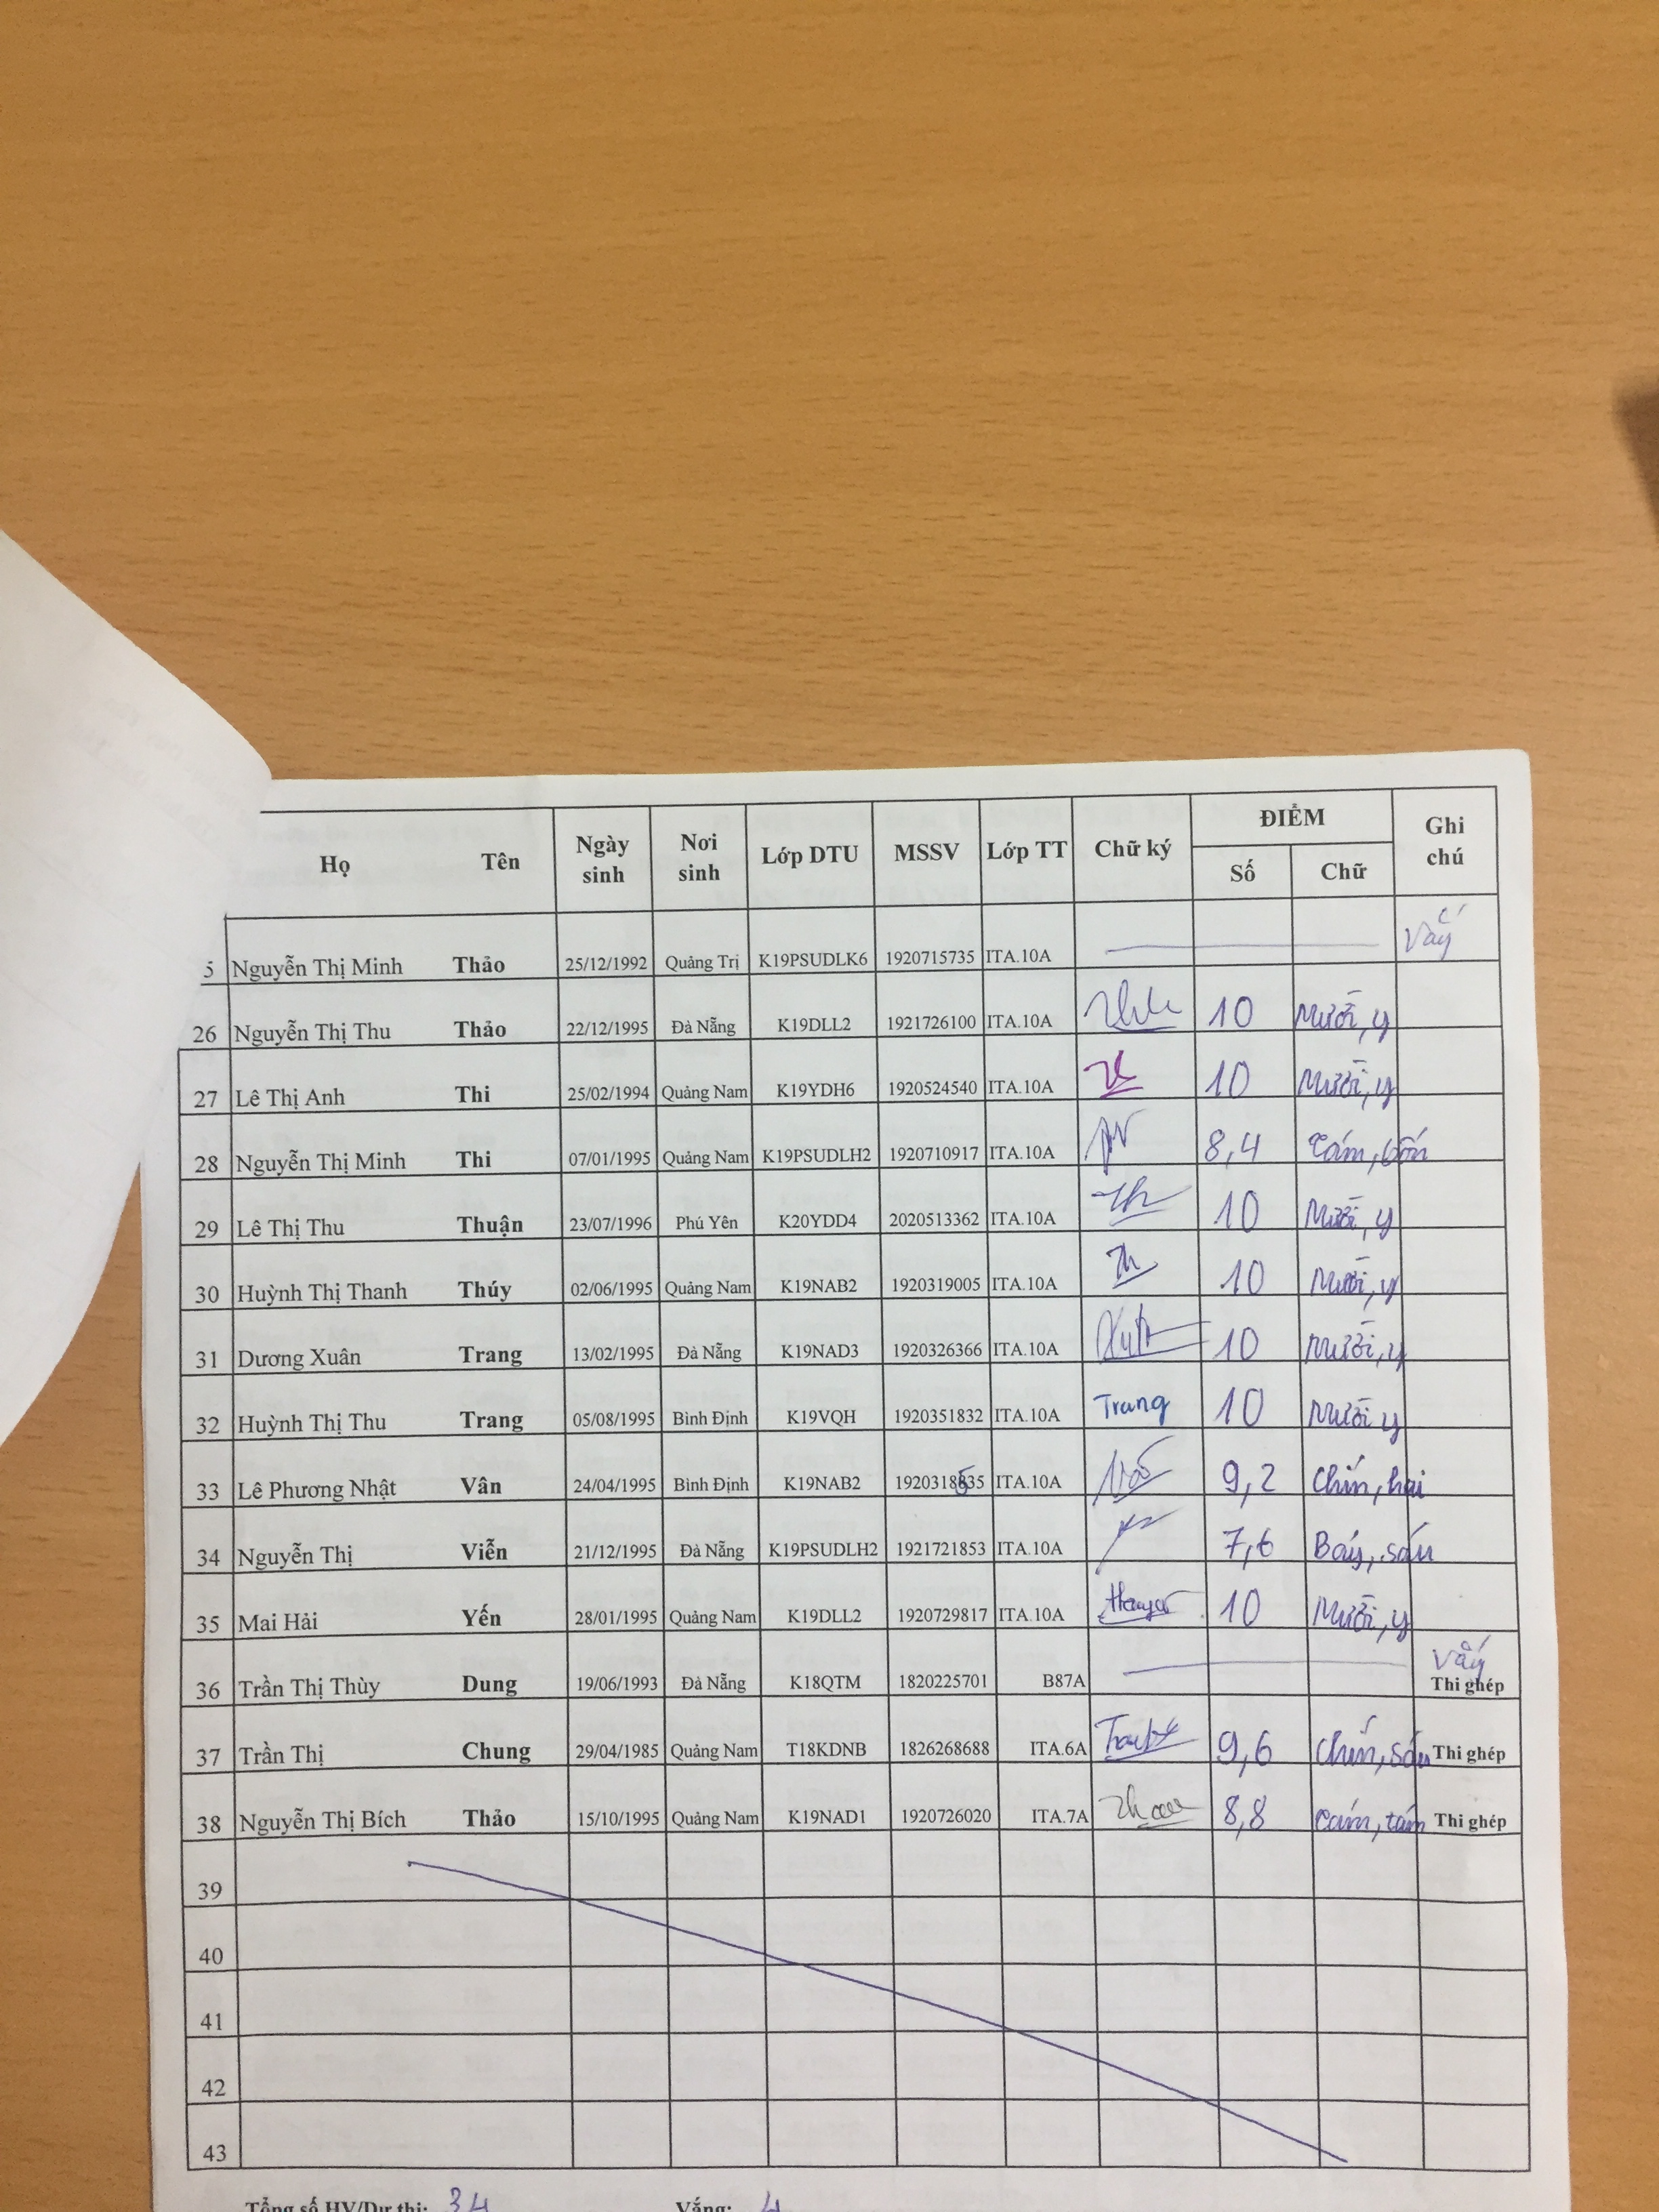 Họ Tên Ngày sinh Nơi sinh Lớp DTU MSSV Lớp TT Chữ ký ĐIỂM Ghi chú
Số Chữ
5 Nguyễn Thị Minh Thảo 25/12/1992 Quảng Trị K19PSUDLK6 1920715735 ITA.10A Vắng
26 Nguyễn Thị Thu Thảo 22/12/1995 Đà Nẵng K19DLL2 1921726100 ITA.10A 10 Mười, y
27 Lê Thị Anh Thi 25/02/1994 Quảng Nam K19YDH6 1920524540 ITA.10A 10 Mười, y
28 Nguyễn Thị Minh Thi 07/01/1995 Quảng Nam K19PSUDLH2 1920710917 ITA.10A 8,4 Tám, bốn
29 Lê Thị Thu Thuận 23/07/1996 Phú Yên K20YDD4 2020513362 ITA.10A 10 Mười, y
30 Huỳnh Thị Thanh Thúy 02/06/1995 Quảng Nam K19NAB2 1920319005 ITA.10A 10 Mười, y
31 Dương Xuân Trang 13/02/1995 Đà Nẵng K19NAD3 1920326366 ITA.10A 10 Mười, y
32 Huỳnh Thị Thu Trang 05/08/1995 Bình Định K19VQH 1920351832 ITA.10A Trang 10 Mười y
33 Lê Phương Nhật Vân 24/04/1995 Bình Định K19NAB2 ITA.10A 9,2 Chín, hai
34 Nguyễn Thị Viễn 21/12/1995 Đà Nẵng K19PSUDLH2 1921721853 ITA.10A 7,6 Bảy, sáu
35 Mai Hải Yến 28/01/1995 Quảng Nam K19DLL2 1920729817 ITA.10A 10 Mười, y
36 Trần Thị Thùy Dung 19/06/1993 Đà Nẵng K18QTM 1820225701 B87A Vắng Thi ghép
37 Trần Thị Chung 29/04/1985 Quảng Nam T18KDNB 1826268688 ITA.6A 9,6 Chín, sáu Thi ghép
38 Nguyễn Thị Bích Thảo 15/10/1995 Quảng Nam K19NAD1 1920726020 ITA.7A 8,8 Tám, tám Thi ghép
39
40
41
42
43
Tổng số HV/Dự thi: 34 Vắng: 4